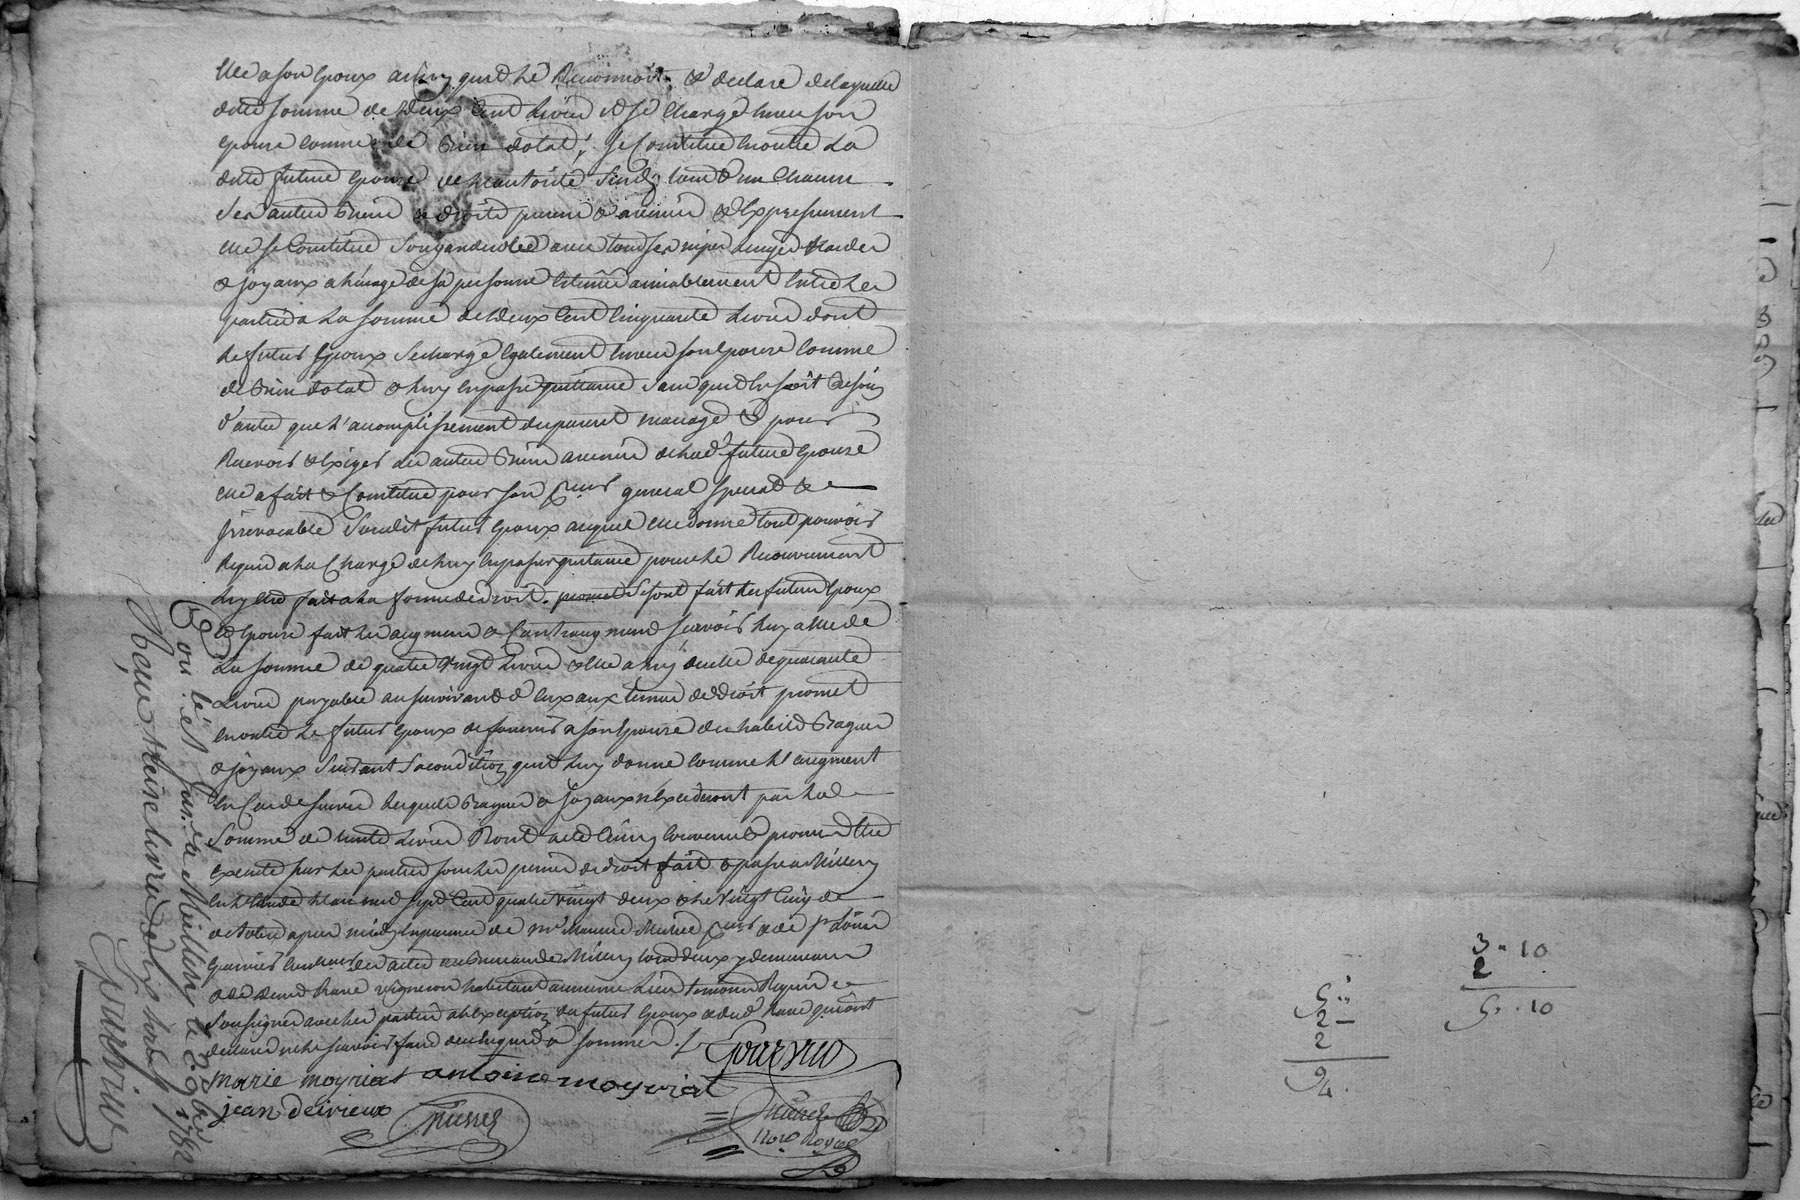 elle a son epoux ainsy quil le Reconnoit & declare de laquelle
ditte somme de deux cent livres il se charge envers son
epouse comme de bien dotal; se constitue en outre la
ditte future epouse de l'autorité susd. tous & un chacun
ses autres biens & droits presens & avenir & expressement
elle se constitue son garderobe avec tous ses nipes linges hardes
& joyaux a l'usage de sa personne estimé amiablement entre les
parties a la somme de deux cent cinquante livres dont
le futur Epoux se charge egalement envers son epouse comme
de bien dotal & luy en passe quittance sans quil en soit besoin
d'autre que l'accomplissement du present mariage & pour
Recevoir & exiger les autres biens avenir de lad. future epouse
elle a fait & constitué pour son procureur general special &
irrevocable le susdit futur epoux auquel elle donne tout pouvoir
Requis a la charge de luy en passer quittance pour le Recouvrement
luy etre fait a la forme de droit. se sont fait les futurs epoux
& epouse fait les augment & contraugment sçavoir luy a elle de
la somme de quatre vingt livres & elle a luy de celle de quarante
livres payable au survivant d'eux aux termes de droit promet
en outre le futur epoux de fournir a son epouse des habits Bagues
& joyaux suivant sa condition quil luy donne comme l'augment
en cas de survie lesquels Bagues & joyaux n'excederont pas la
somme de trente livres Dont acte ainsy convenu & promis etre
executé par les parties sous les peines de droit fait & passé a Millery
en l'etude l'an mil sept cent quatre vingt deux & le vingt cinq
octobre apres midy en presence de Mr
des actes au Bureau de Millery tous deux y demeurant
& de vigneron habitant au meme lieu temoins Requis &
soussignés avec les parties a l'exception du futur epoux & dud. qui ont
declaré ne le sçavoir faire de ce enquis & sommés.
marie moyriat antoine moyriat
jean deivieux
Contrôlé par. à Millery le 28 8bre 1782
Reçu treize livres dix sols
3 " 10
2
5 . . 10
5
2
2
9